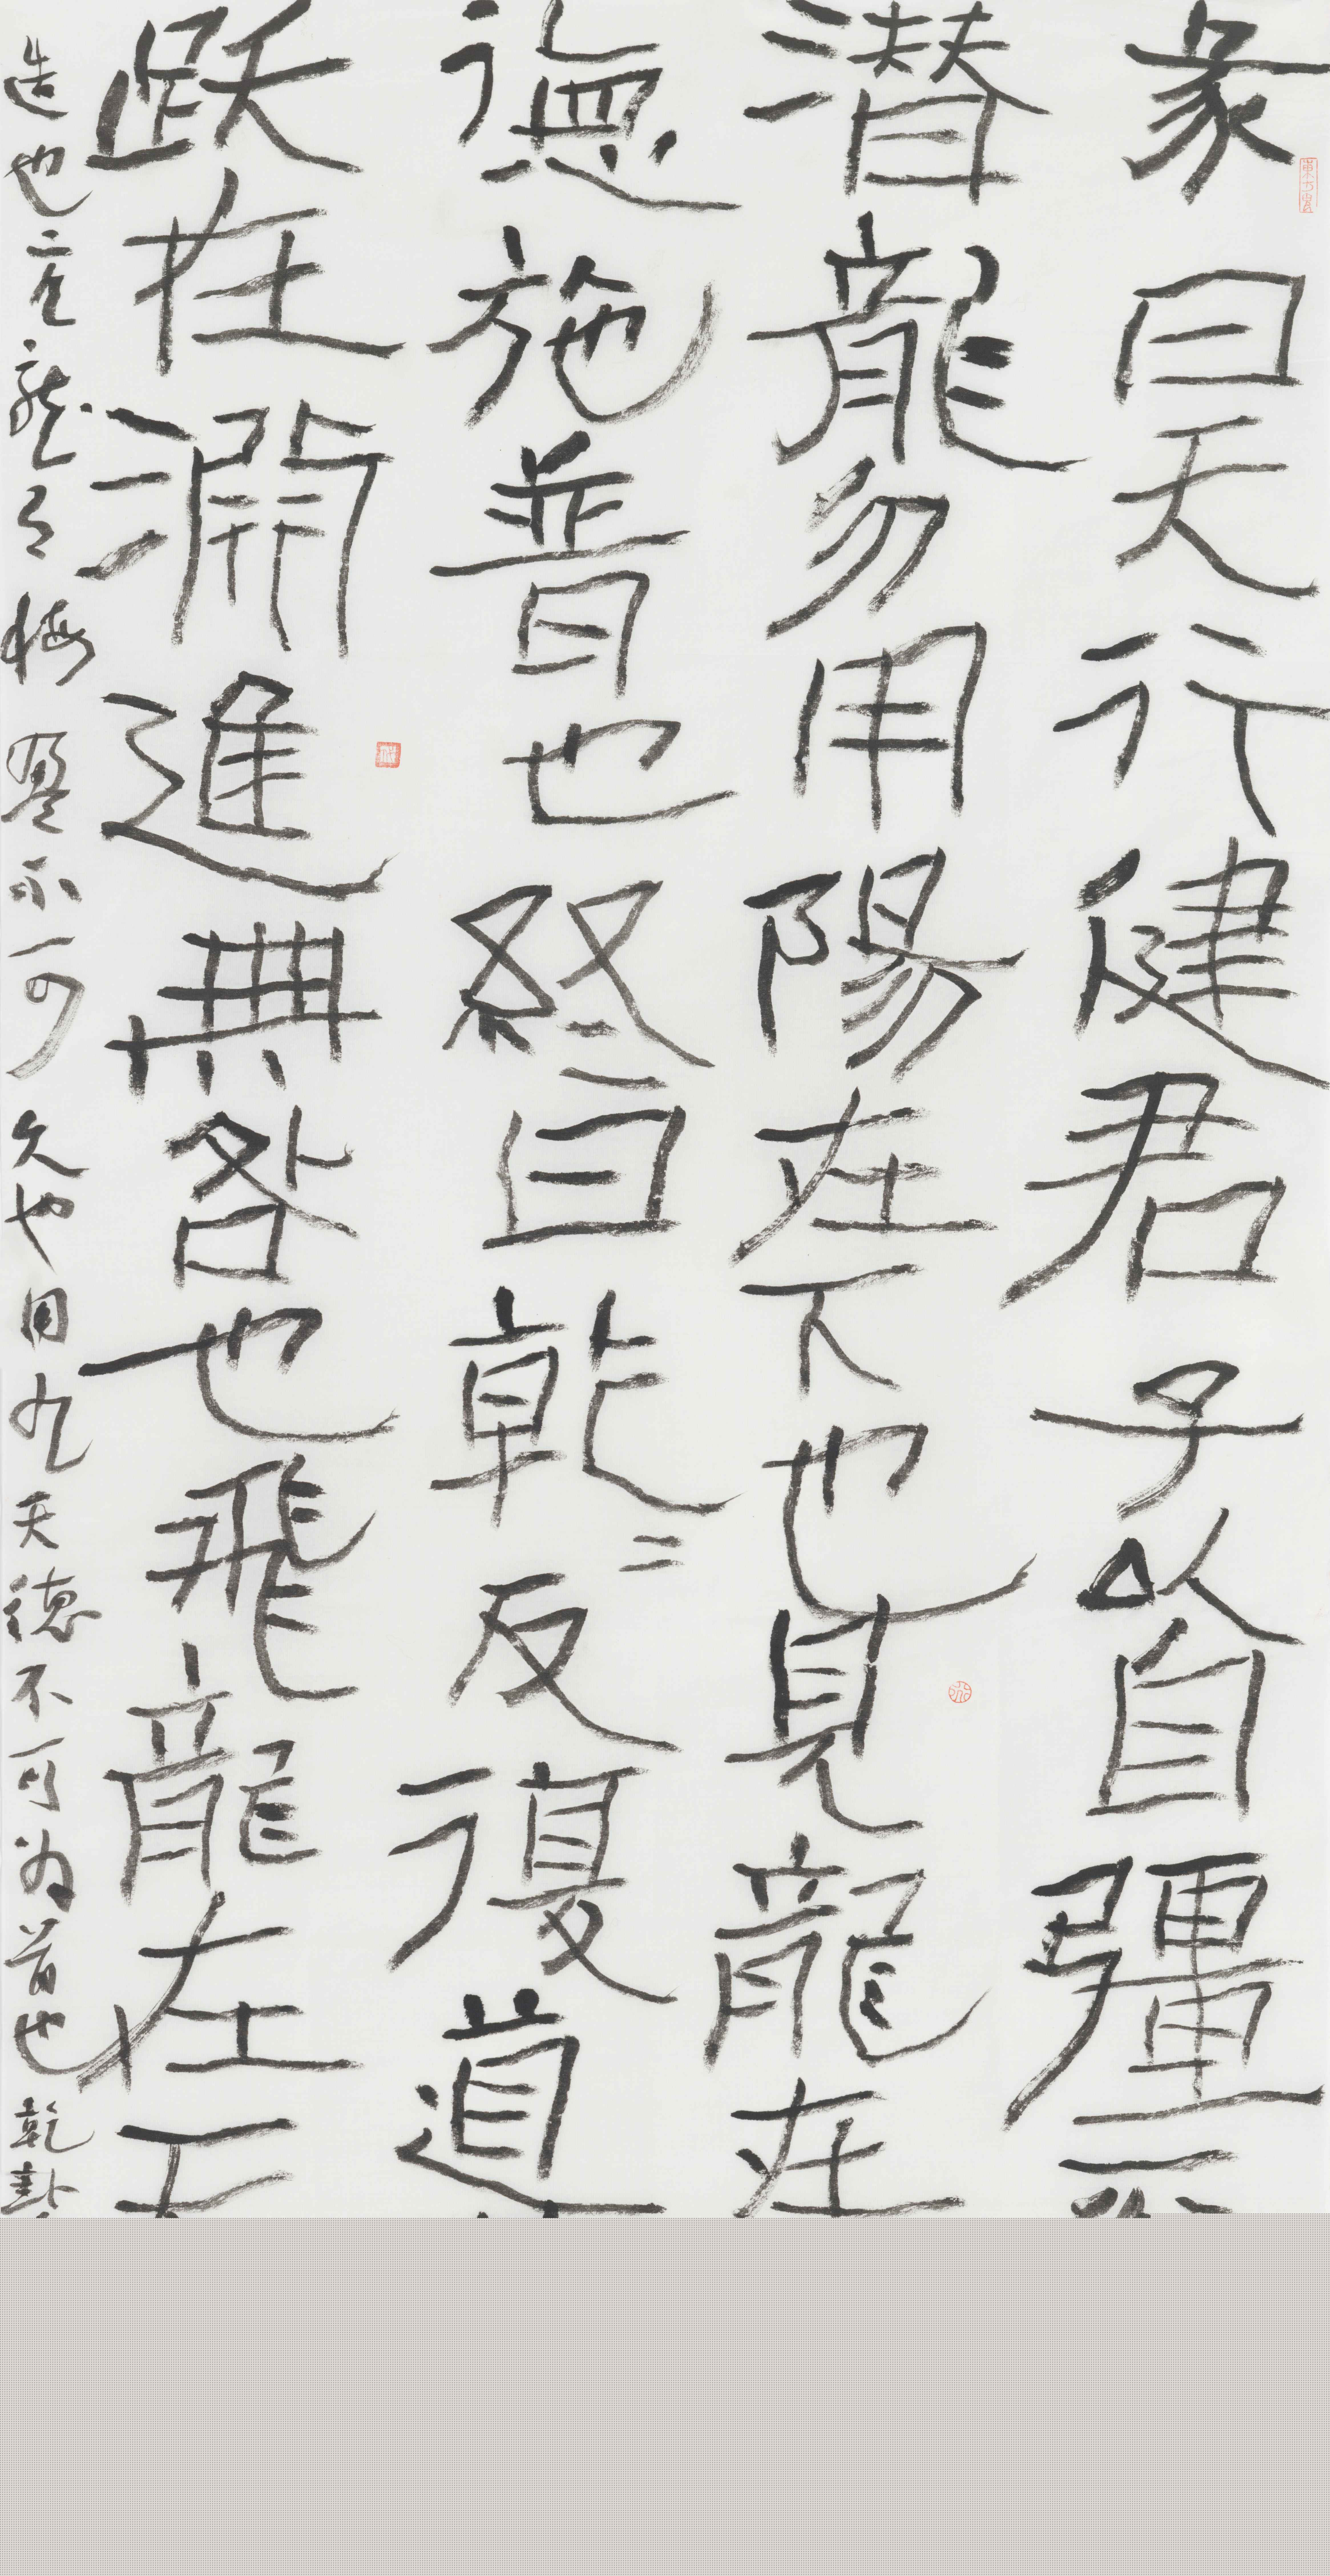 彖曰天行健君子以自彊
潜龍勿用陽在下也見龍在
德施普也終日乾〻反復道
跃在淵進無咎也飛龍在天
造也亢龍有悔盈不可久也用九天德不可为首也乾卦